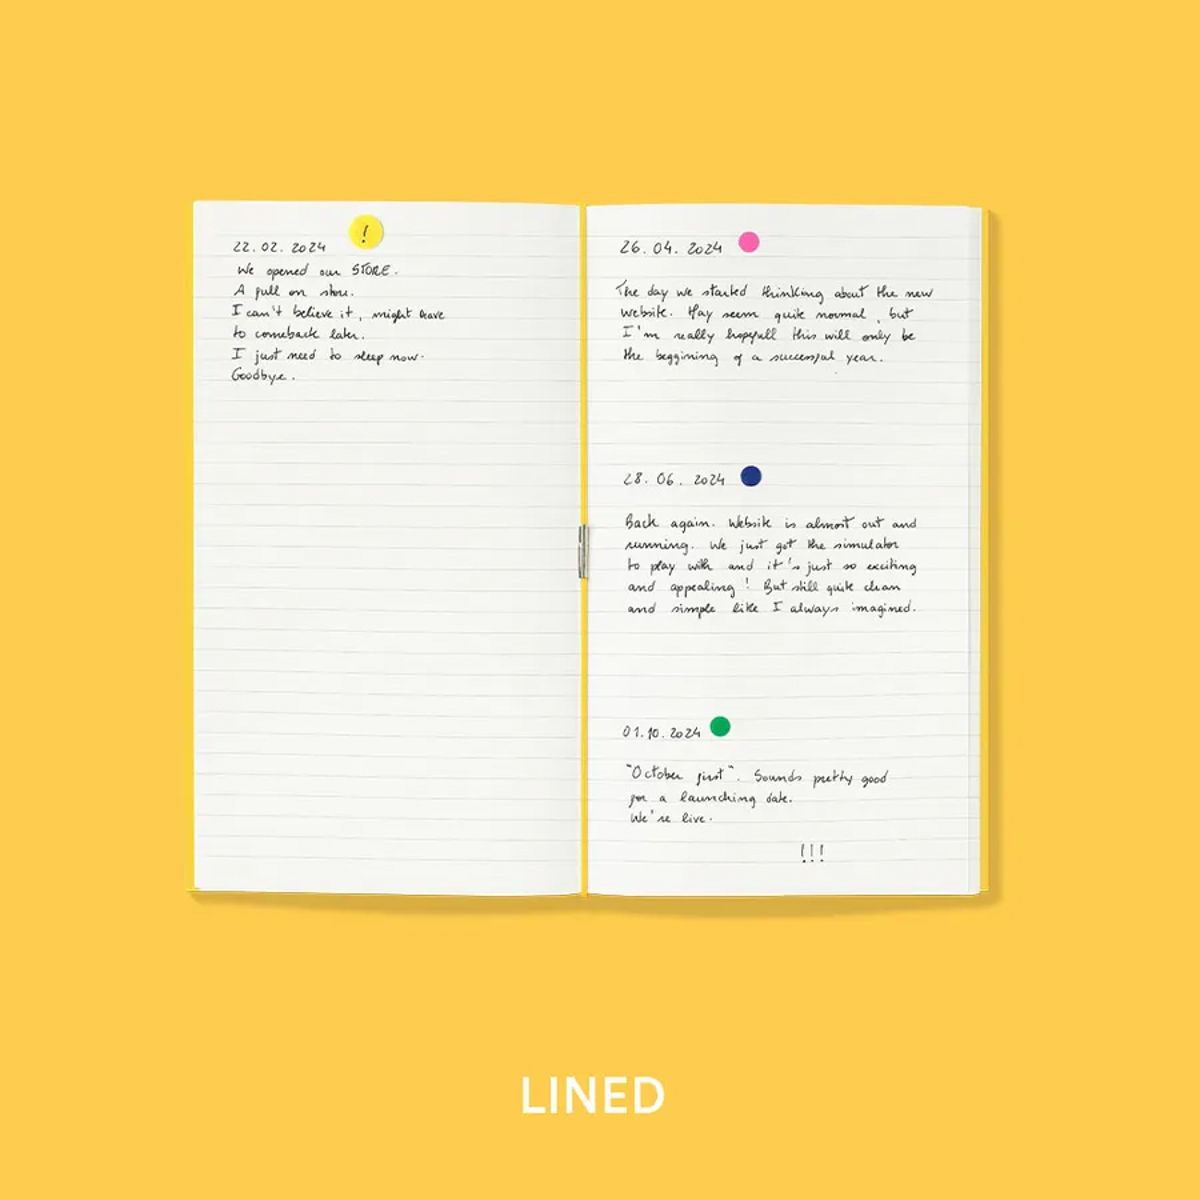 !
22.02.2024
We opened our STORE.
A full on store.
I can't believe it, might have
to comeback later.
I just need to sleep now.
Goodbye.
26.04.2024
The day we started thinking about the new
website. May seem quite normal, but
I'm really hopefull this will only be
the beggining of a successful year.
28.06.2024
Back again. Website is almost out and
running. We just got the simulator
to play with and it's just so exciting
and appealing! But still quite clean
and simple like I always imagined.
01.10.2024
"October first". Sounds pretty good
for a launching date.
We're live.
!!!
LINED